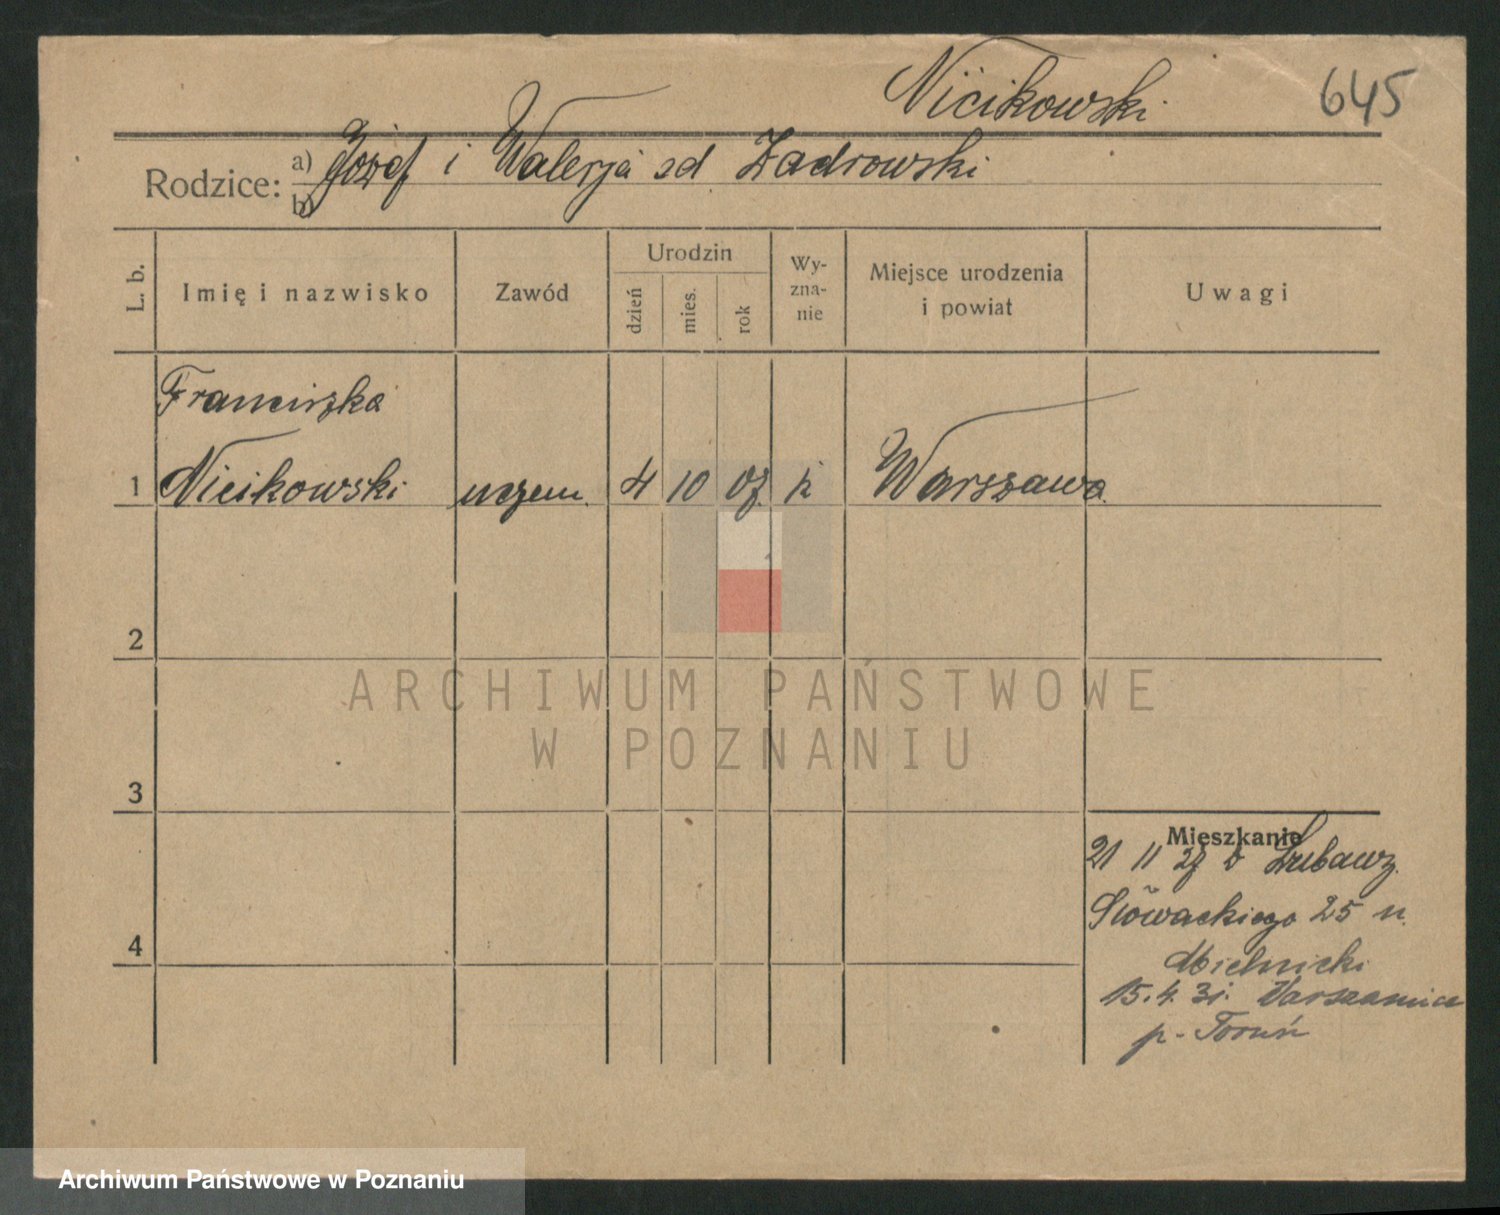 Nicikowski 645
Rodzice: a) Józef i Walerja zd Zadrowski
b)
L. b. Imię i nazwisko Zawód Urodzin dzień mies. rok Wyznanie Miejsce urodzenia i powiat Uwagi
Franciszka
1 Nicikowski uczen. 4 10 07. k Warszawa
2
ARCHIWUM PAŃSTWOWE
W POZNANIU
3
Mieszkanie
21 11 27 Lubawy.
Słowackiego 25 u.
4
Mielnicki
15.4.31.
p. Toruń
Archiwum Państwowe w Poznaniu